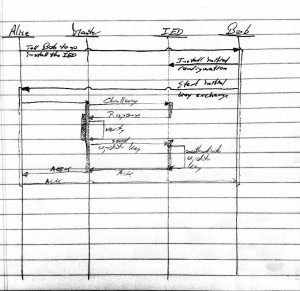 Alice Master IED Bob
Tell Bob to go
install the IED
Install initial
configuration
Start initial
key exchange
Challenge
Response
verify
send
update key
update
key
Ack
Ack